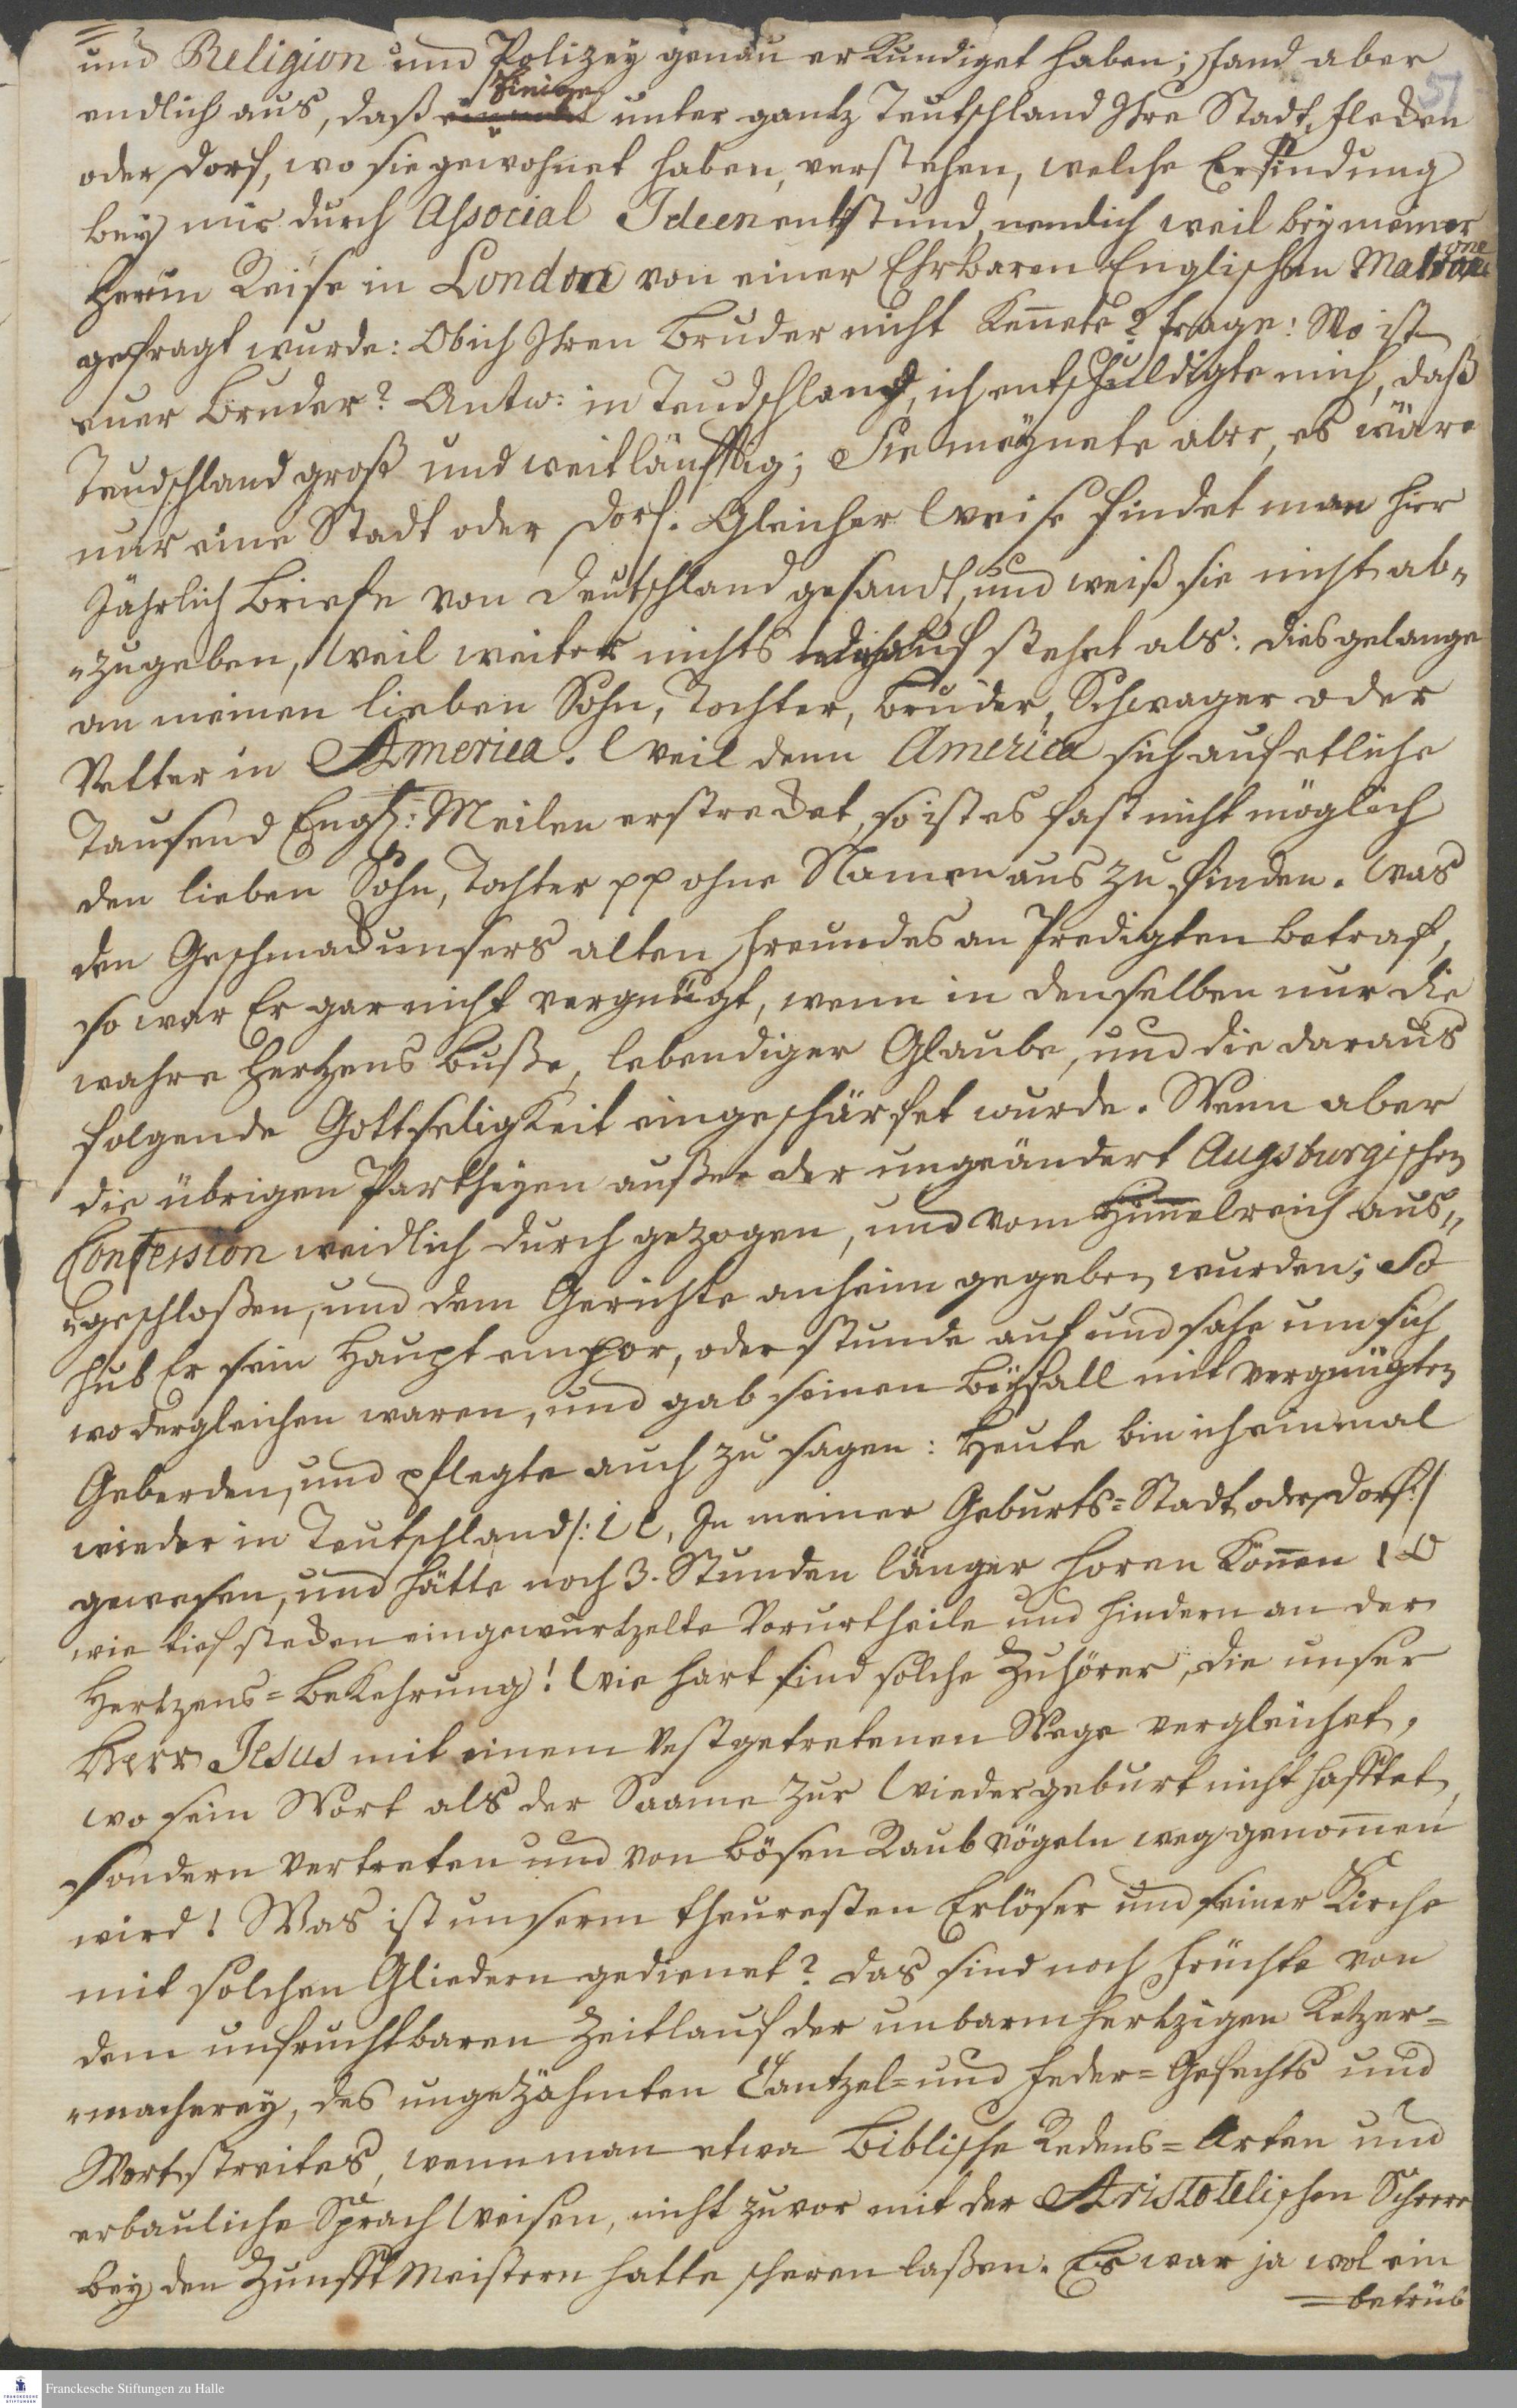 und Religion und Polizey genau erkundiget haben; fand aber
51
Einige
endlich aus, daß unter gantz Teutschland Ihre Stadt, Flecken
oder Dorf, wo sie gewohnet haben, verstehen, welche Erfindung
bey mir durch Associal Ideen entstund, nemlich weil bey meiner
Herein Reise in London von einer Ehrbaren Englischen Matrone
gefragt wurde: Ob ich Ihren Bruder nicht Kennete? frage: Wo ist
euer Bruder? Antw: in Teudschland, ich entschuldigte mich, daß
Teudschland groß und weitläufftig; Sie meÿnete aber, es wäre
nur eine Stadt oder Dorf. Gleicher Weise findet man hier
Jährlich Briefe von Deutschland gesandt, und weiß sie nicht ab„
„zugeben, Weil weiter nichts drauf stehet als: dies gelange
an meinen lieben Sohn, Tochter, Bruder, Schwager oder
Vetter in America. Weil denn America sich auf etliche
Tausend Engl: Meilen erstrecket, so ist es fast nicht möglich
den lieben Sohn, Tochter pp ohne Namen aus zu finden. Was
den Geschmack unsers alten Freundes an Predigten betraf,
so war Er gar nicht vergnügt, wenn in denselben nur die
wahre Hertzens Buße, lebendiger Glaube, und die daraus
folgende Gottseligkeit eingeschärfet wurde. Wenn aber
die übrigen Partheyen außer der ungeändert Augsburgischen
Confession weidlich durch gezogen, und vom Himelreich aus„
„geschloßen, und dem Gerichte anheim gegeben wurden; So
hub Er sein Haupt empor, oder stunde auf und sahe um sich
wo dergleichen waren, und gab seinen Beÿfall mit vergnügten
Geberden, und pflegte auch zu sagen: Heute bin ich einmal
wieder in Teutschland /: i e, In meiner Geburts=Stadt oder Dorf :/
gewesen, und hätte noch 3. Stunden länger horen Könen! O
wie tief stecken eingewurtzelte Vorurtheile und hindern an der
Hertzens=Bekehrung! Wie hart sind solche Zuhörer, die unser
Herr Jesus mit einem vestgetretenen Wege vergleichet,
wo sein Wort als der Saame zur Wiedergeburt nicht hafftet,
sondern vertreten und von bösen Raubvögeln weg genomen
wird! Was ist unserm theuresten Erlöser und seiner Kirche
mit solchen Gliedern gedienet? das sind noch Früchte von
dem unfruchtbaren Zeitlauf der unbarmhertzigen Ketzer=
„macherey, des ungezähmten Cantzel= und Feder=Gefechts und
Wortstreites, wenn man etwa Biblische Redens=Arten und
erbauliche Sprach Weisen, nicht zuvor mit der Aristotelischen Scheere
bey den Zunfft Meistern hatte scheren laßen. Es war ja wol ein
=betrüb
Franckesche Stiftungen zu Halle